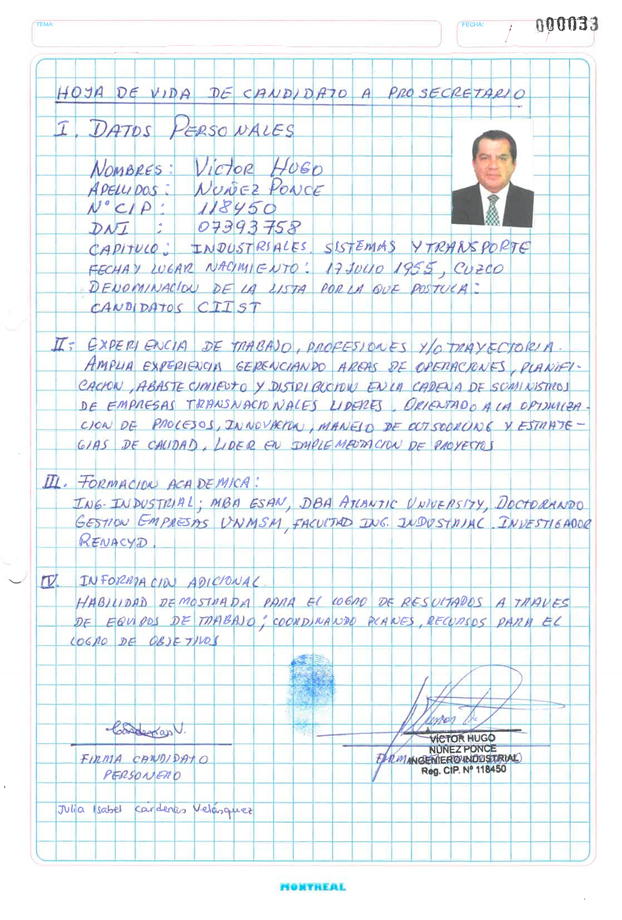 TEMA:
FECHA:
000033
HOJA DE VIDA DE CANDIDATO A PROSECRETARIO
I. DATOS PERSONALES
NOMBRES: VICTOR HUGO
APELLIDOS: NUÑEZ PONCE
N° CIP: 118450
DNI : 07393758
CAPITULO: INDUSTRIALES. SISTEMAS Y TRANSPORTE
FECHA Y LUGAR NACIMIENTO: 17 JULIO 1955, CUZCO
DENOMINACION DE LA LISTA POR LA QUE POSTULA:
CANDIDATOS CIIST
II- EXPERIENCIA DE TRABAJO, PROFESIONES Y/O TRAYECTORIA.
AMPLIA EXPERIENCIA GERENCIANDO AREAS DE OPERACIONES, PLANIFI-
CACION, ABASTECIMIENTO Y DISTRIBUCION EN LA CADENA DE SUMINISTROS
DE EMPRESAS TRANSNACIONALES LIDERES. ORIENTADO A LA OPTIMIZA-
CION DE PROCESOS, INNOVACION, MANEJO DE OUTSOURCING Y ESTRATE-
GIAS DE CALIDAD. LIDER EN IMPLEMETACION DE PROYECTOS
III. FORMACION ACADEMICA:
ING. INDUSTRIAL; MBA ESAN, DBA ATLANTIC UNIVERSITY, DOCTORANDO
GESTION EMPRESAS UNMSM, FACULTAD ING. INDUSTRIAL. INVESTIGADOR
RENACYD.
IV. INFORMACION ADICIONAL
HABILIDAD DEMOSTRADA PARA EL LOGRO DE RESULTADOS A TRAVES
DE EQUIPOS DE TRABAJO; COORDINANDO PLANES, RECURSOS PARA EL
LOGRO DE OBJETIVOS
Cárdenas V.
FIRMA CANDIDATO
PERSONERO
VICTOR HUGO
NÚÑEZ PONCE
INGENIERO INDUSTRIAL
Reg. CIP. N° 118450
Julia Isabel Cárdenas Velásquez
MONTREAL